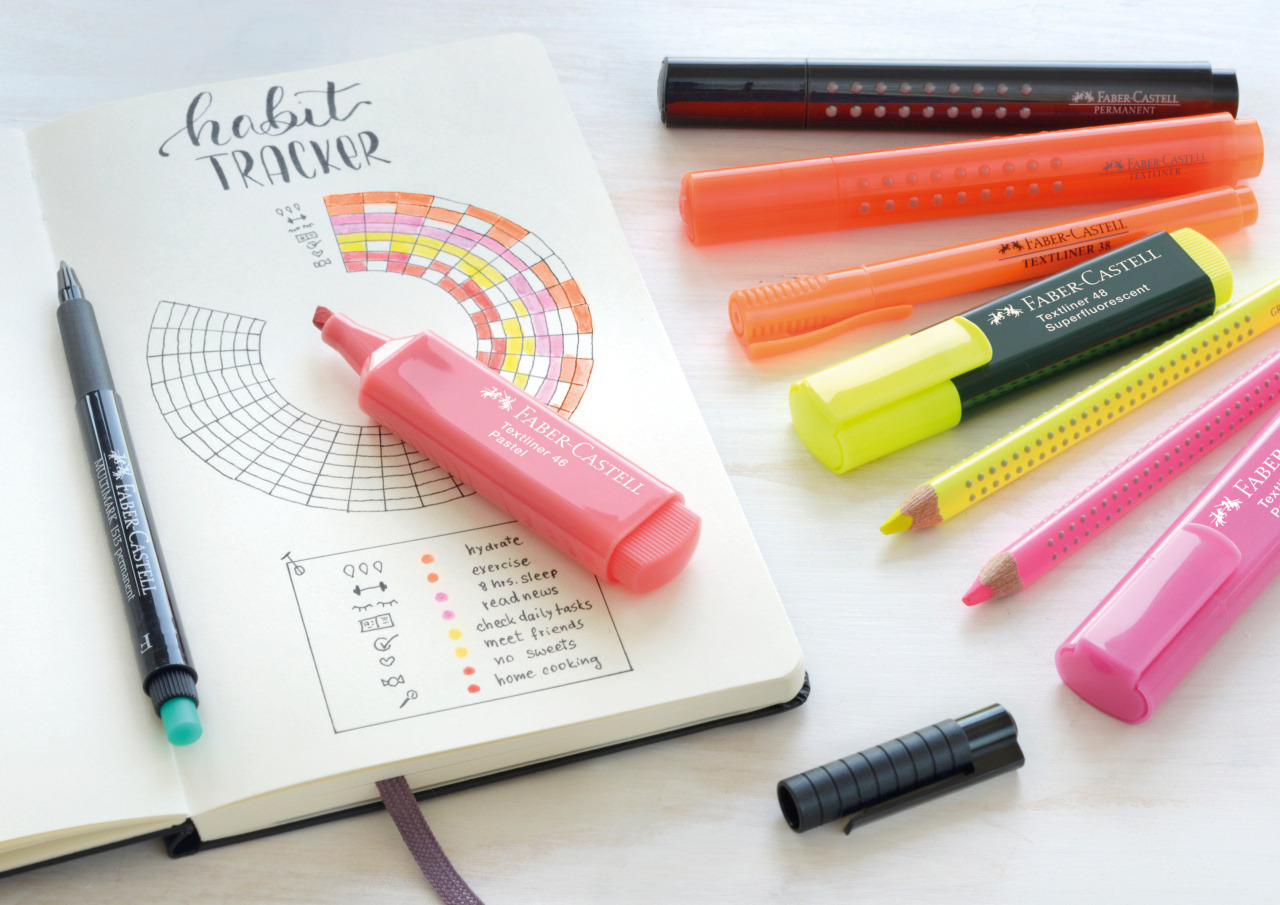 habit
TRACKER
hydrate
exercise
8 hrs. sleep
read news
check daily tasks
meet friends
no sweets
home cooking
FABER-CASTELL
MULTIMARK 1513 permanent
FABER-CASTELL
Textliner 46
Pastel
FABER-CASTELL
PERMANENT
FABER-CASTELL
TEXTLINER
FABER-CASTELL
TEXTLINER 38
FABER-CASTELL
Textliner 48
Superfluorescent